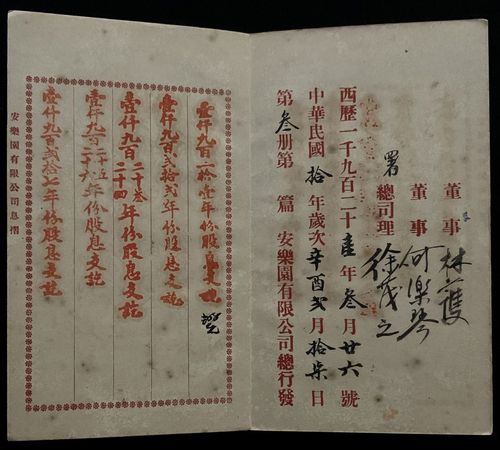 董事 林護
董事 何樂琴
署總司理 徐茂之
西歷一千九百二十壹年叁月廿六號
中華民國拾年歲次辛酉弍月拾柒日
第叁册第 篇 安樂園有限公司總行發
壹仟九百二拾壹年份股息支訖
壹仟九百貳拾貳年份股息支訖
壹仟九百二十叁二十四年份股息支訖
壹仟九百二十五二十六年份股息支訖
壹仟九百貳拾七年份股息支訖
安樂園有限公司息摺